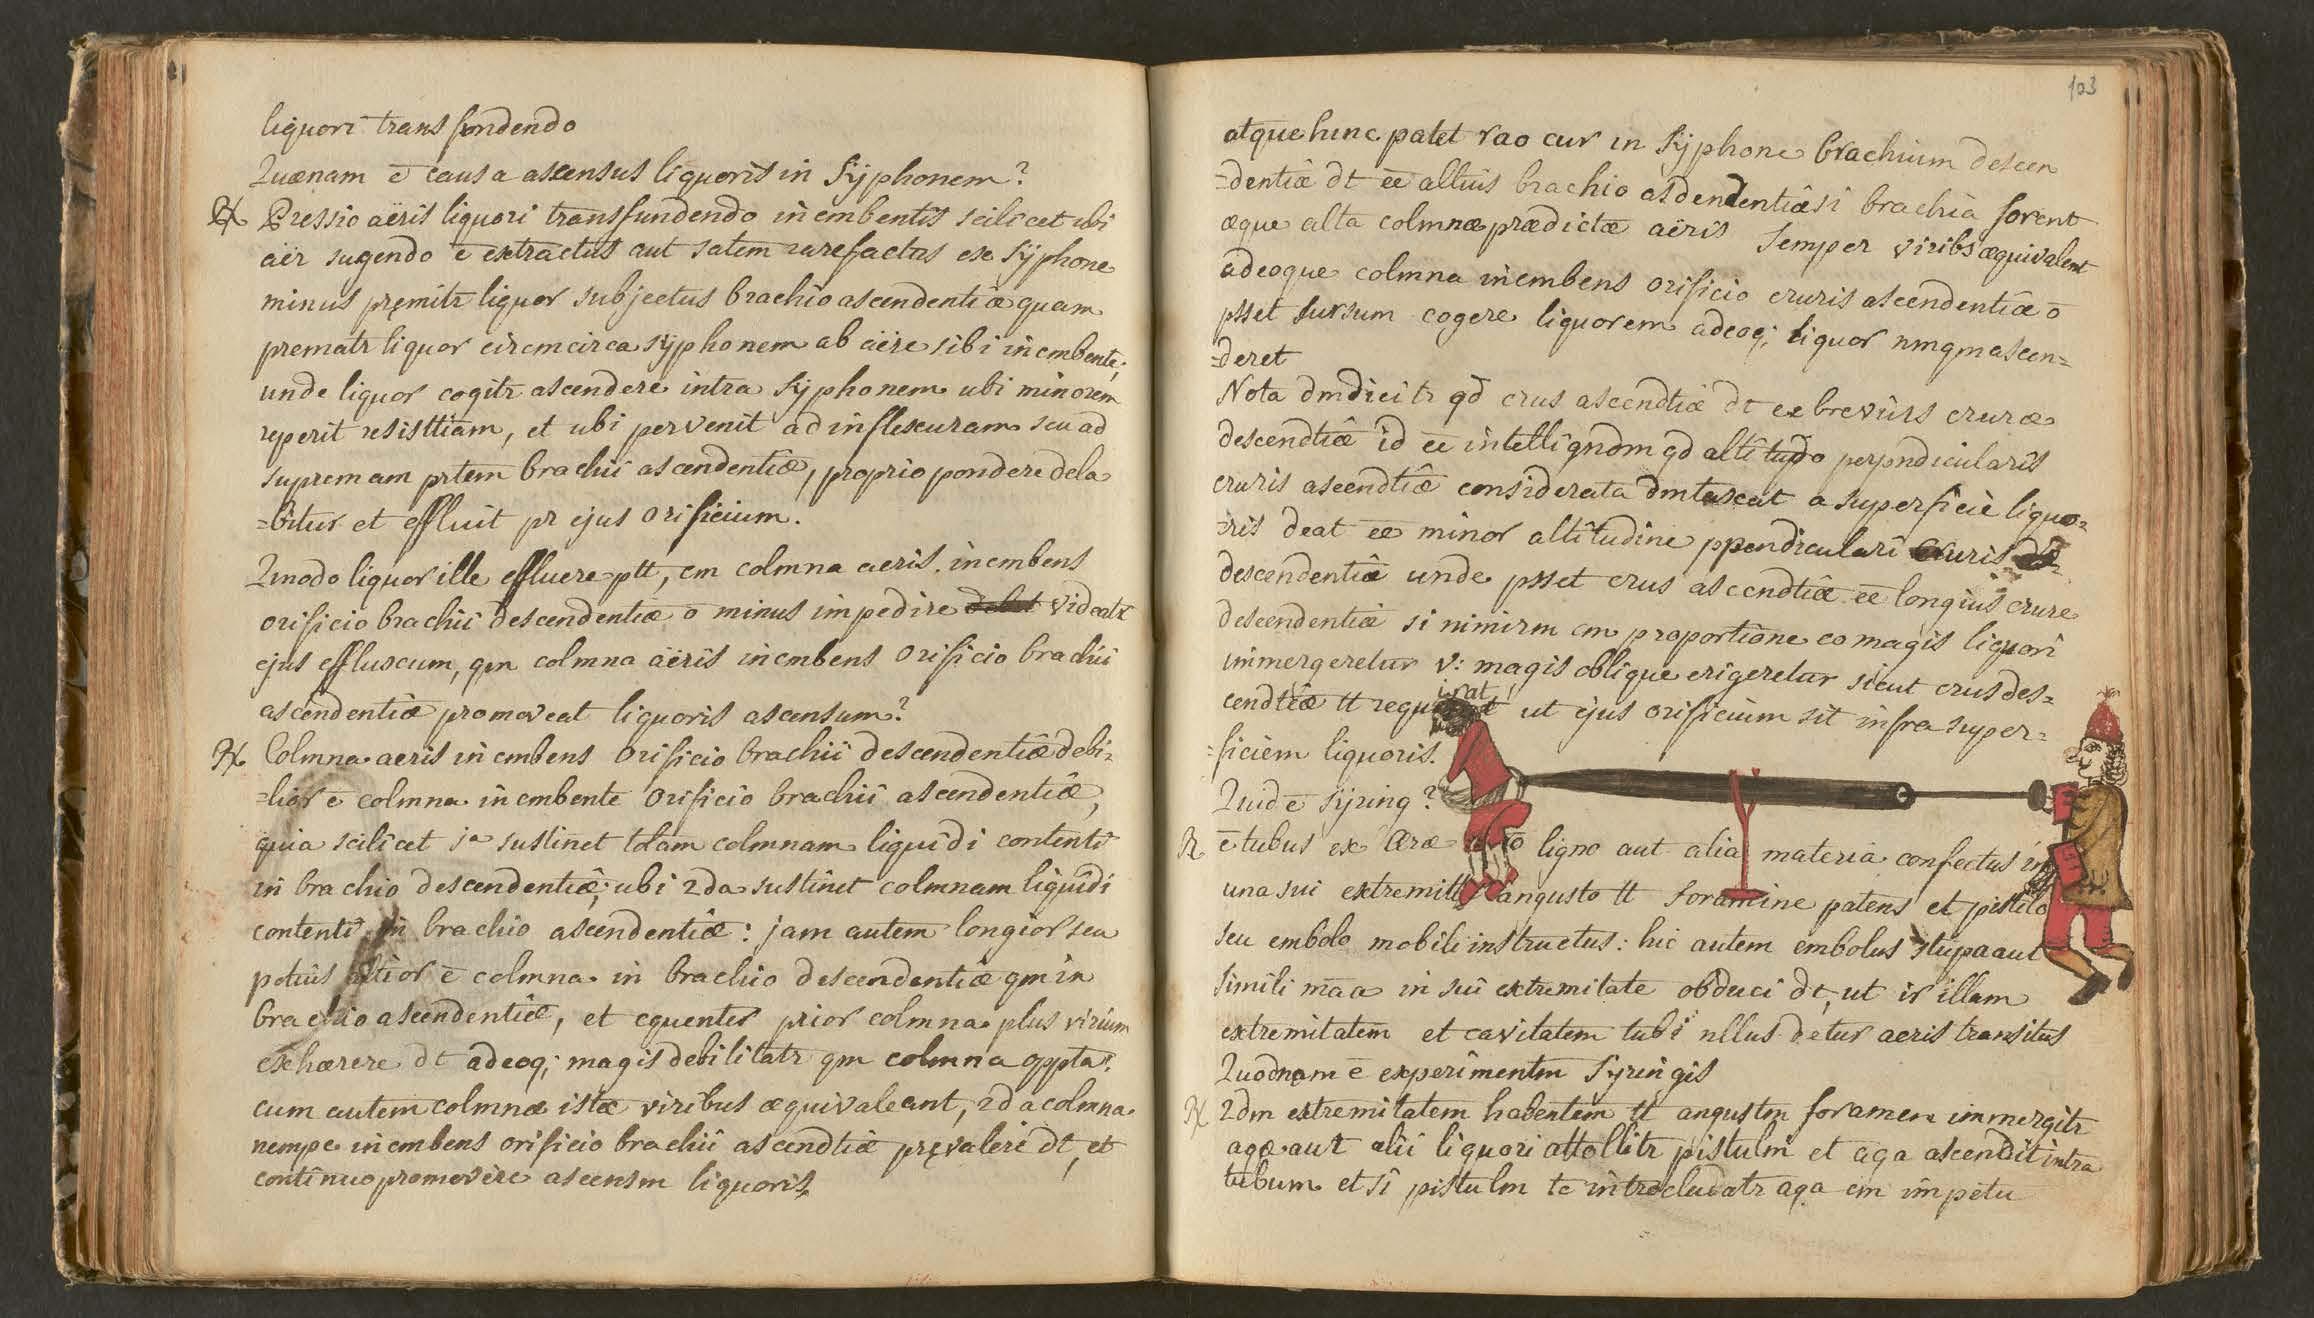 liquori transfundendo
Quænam ē causa ascensus liquoris in Syphonem?
℟ Pressio aëris liquori transfundendo incumbentis scilicet ubi
aër sugendo ē extractus aut saltem rarefactus ex Syphone
minus pręmitr liquor subjectus brachio ascendentiæ quam
prematr liquor circmcirca syphonem ab aëre sibi incmbente;
unde liquor cogitr ascendere intra Syphonem ubi minorem
reperit resisttiam, et ubi pervenit ad inflexuram seu ad
supremam prtem brachii ascendentiæ, proprio pondere dela
=bitur et effluit pr ejus orificium.
Qmodo liquor ille effluere ptt, cm colmna aeris incmbens
orificio brachii descendentiæ ō minus impedire videatr
ejus effluxum, qm colmna aëris incmbens orificio brachii
ascendentiæ promoveat liquoris ascensum?
℟ Colmna aeris incmbens orificio brachii descendentiæ debi-
=lior ē colmna incmbente orificio brachii ascendentiæ,
quia scilicet 1a sustinet totam colmnam liquidi contenti
in brachio descendentiæ; ubi 2da sustinet colmnam liquidi
contenti in brachio ascendentiæ: jam autem longior seu
potius altior ē colmna in brachio descendentiæ qm in
brachio ascendentiæ, et cquenter prior colmna plus virium
exhærere dt adeoq; magis debilitatr qm colmna oppta.
cum autem colmnæ istæ viribus æquivaleant, 2da colmna
nempe incmbens orificio brachii ascendtiæ pręvaleri dt, et
continuo promovere ascensm liquoris.
103
atque hinc patet rao cur in Syphone brachium descen
=dentiæ dt eē altius brachio asdendentiæ si brachia forent
æque alta colmnæ prædictæ aëris semper viribs æquivalent
adeoque colmna incmbens orificio cruris ascendentiæ ō
psset sursum cogere liquorem adeoq; liquor nmqm ascen=
=deret
Nota dm dicitr qd crus ascendtiæ dt eē brevius crure
descendtiæ id eē intelligndm qd altitudo perpndicularis
cruris ascendtiæ considerata dmtaxat a superficie liquo=
=ris deat eē minor altitudine ppendiculari cruris
descendentiæ unde psset crus ascendtiæ eē longius crure
descendentiæ si nimirm cm proportione eo magis liquori
immergeretur v: magis oblique erigeretur sicut crus des=
cendtiæ tt requirat ut ejus orificium sit infra super=
=ficiem liquoris.
Quid ē syring?
℟ ē tubus ex ære ligno aut alia materia confectus in
una sui extremitte angusto tt foramine patens et pistilo
seu embolo mobili instructus: hic autem embolus stupa aut
simili maa in sui extremitate obduci dt, ut ir illam
extremitatem et cavitatem tubi nllus detur aeris transitus
Quodnam ē experimentm Syringis
℟ 2dm extremitatem habentem tt angustm foramen immergitr
aqæ aut alii liquori attollitr pistulm et aqa ascendit intra
tubum et si pistulm te introcludatr aqa cm impetu